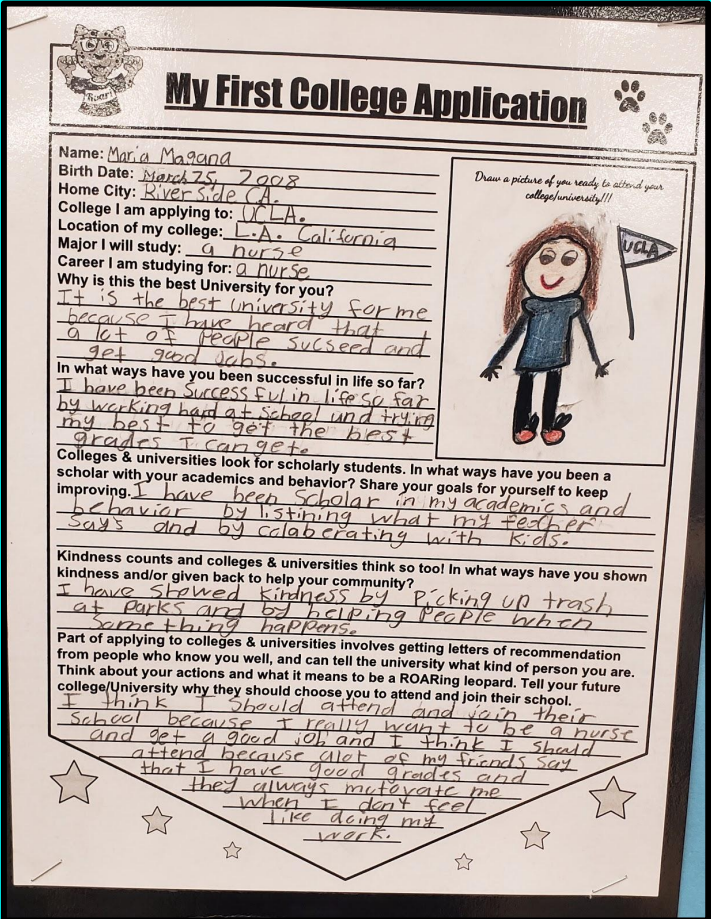 Roar!
My First College Application
Name: Maria Magana
Birth Date: March 25, 2008
Home City: River side CA.
College I am applying to: UCLA.
Location of my college: L.A. California
Major I will study: a nurse
Career I am studying for: a nurse
Why is this the best University for you?
It is the best university for me
because I have heard that
a lot of people sucseed and
get good Jobs.
In what ways have you been successful in life so far?
I have been successful in life so far
by working hard at school und trying
my best to get the best
grades I can get.
Draw a picture of you ready to attend your
college/university!!!
UCLA
Colleges & universities look for scholarly students. In what ways have you been a
scholar with your academics and behavior? Share your goals for yourself to keep
improving. I have been scholar in my academics and
behavior by listining what my teather
says and by colaberating with kids.
Kindness counts and colleges & universities think so too! In what ways have you shown
kindness and/or given back to help your community?
I have showed kindness by picking up trash
at parks and by helping people when
something happens.
Part of applying to colleges & universities involves getting letters of recommendation
from people who know you well, and can tell the university what kind of person you are.
Think about your actions and what it means to be a ROARing leopard. Tell your future
college/University why they should choose you to attend and join their school.
I think I should attend and join their
school because I really want to be a nurse
and get a good job and I think I should
attend because alot of my friends say
that I have good grades and
they always motovate me
when I don't feel
like doing my
work.